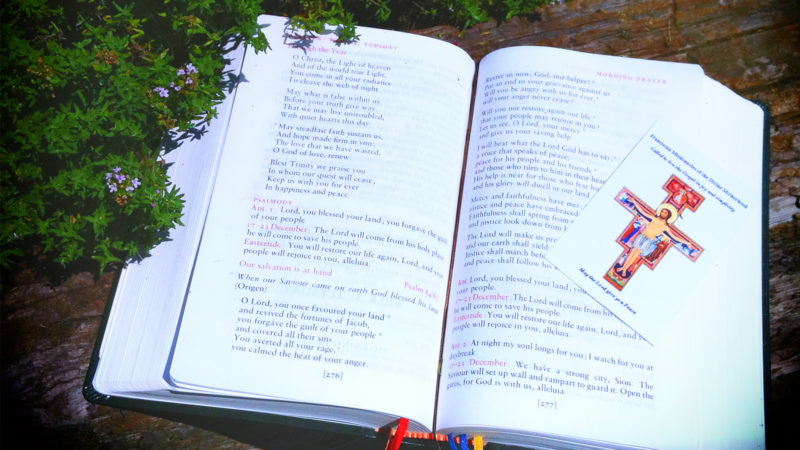 TUESDAY
Through the Year
O Christ, the Light of heaven
And of the world true Light,
You come in all your radiance
To cleave the web of night.
May what is false within us
Before your truth give way
That we may live untroubled,
With quiet hearts this day.
May steadfast faith sustain us,
And hope made firm in you;
The love that we have wasted,
O God of love, renew.
Blest Trinity we praise you
In whom our quest will cease;
Keep us with you for ever
In happiness and peace.
PSALMODY
Ant 1: Lord, you blessed your land; you forgave the guilt
of your people.
17-23 December: The Lord will come from his holy place
he will come to save his people.
Eastertide: You will restore our life again, Lord, and your
people will rejoice in you, alleluia.
Our salvation is at hand Psalm 84(85)
When our Saviour came on earth God blessed his land
(Origen)
O Lord, you once favoured your land *
and revived the fortunes of Jacob,
you forgave the guilt of your people *
and covered all their sins.
You averted all your rage, *
you calmed the heat of your anger.
[276]
MORNING PRAYER
Revive us now, God, our helper! *
Put an end to your grievance against us.
Will you be angry with us for ever, *
will your anger never cease?
Will you not restore again our life *
that your people may rejoice in you?
Let us see, O Lord, your mercy *
and give us your saving help.
I will hear what the Lord God has to say, *
a voice that speaks of peace,
peace for his people and his friends *
and those who turn to him in their
His help is near for those who fear
and his glory will dwell in our land
Mercy and faithfulness have met
justice and peace have embraced
Faithfulness shall spring from
and justice look down from
The Lord will make us
and our earth shall yield
Justice shall march before
and peace shall follow his
Ant: Lord, you blessed your land; you
your people.
17-23 December: The Lord will come from his
he will come to save his people.
Eastertide: You will restore our life again, Lord, and
people will rejoice in you, alleluia.
Ant 2: At night my soul longs for you; I watch for you at
daybreak.
17-23 December: We have a strong city, Sion. The
Saviour will set up wall and rampart to guard it. Open the
gates, for God is with us, alleluia.
[277]
Franciscan Missionaries of the Divine Motherhood
Called to live the Gospel in joy and simplicity
May the Lord give you Peace